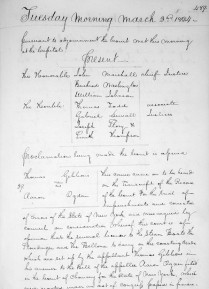 489
Tuesday Morning March 2d 1824.
Pursuant to adjournment the Court met this morning
at the Capitol.
Present
The Honorable John Marshall Chief Justice
Bushrod Washington
William Johnson
The Honble. Thomas Todd associate
Gabriel Duvall Justices
Joseph Story
Smith Thompson
Proclamation being made the Court is opened
Thomas Gibbons This cause came on to be heard
vs on the Transcript of the Record
Aaron Ogden of the Court for the Trial of
Impeachments and correction
of Errors of the State of New York and was argued by
counsel, on consideration whereof this Court is of
opinion that the several licenses to the Steam Boats the
and the Bellona to carry on the coasting trade
which are set up by the appellant Thomas Gibbons in
his answer to the Bill of the appellee Aaron Ogden filed
in the Court of Chancery for the State of New York, which